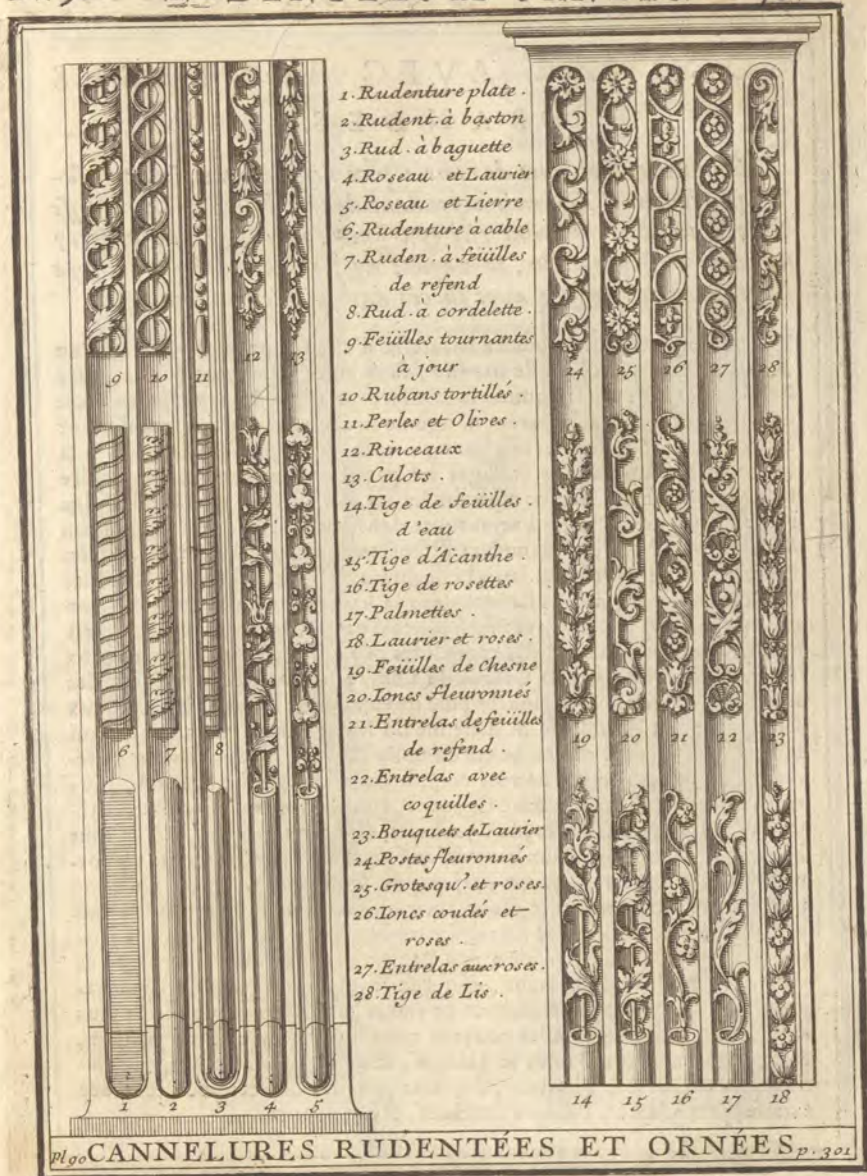 1. Rudenture plate.
2. Rudent. à baston
3. Rud. à baguette
4. Roseau et Laurier
5. Roseau et Lierre
6. Rudenture à cable
7. Ruden. à feüilles
de refend
8. Rud. à cordelette.
9. Feüilles tournantes
à jour
10. Rubans tortillés.
11. Perles et Olives.
12. Rinceaux
13. Culots.
14. Tige de feüilles
d'eau
15. Tige d'Acanthe.
16. Tige de rosettes
17. Palmettes.
18. Laurier et roses.
19. Feüilles de Chesne
20. Ioncs fleuronnés
21. Entrelas de feüilles
de refend.
22. Entrelas avec
coquilles.
23. Bouquets de Laurier
24. Postes fleuronnés
25. Grotesqu.s et roses.
26. Ioncs coudés et
roses.
27. Entrelas avec roses.
28. Tige de Lis.
9 10 11 12 13
6 7 8
1 2 3 4 5
24 25 26 27 28
19 20 21 22 23
14 15 16 17 18
Pl 90 CANNELURES RUDENTÉES ET ORNÉES p. 301